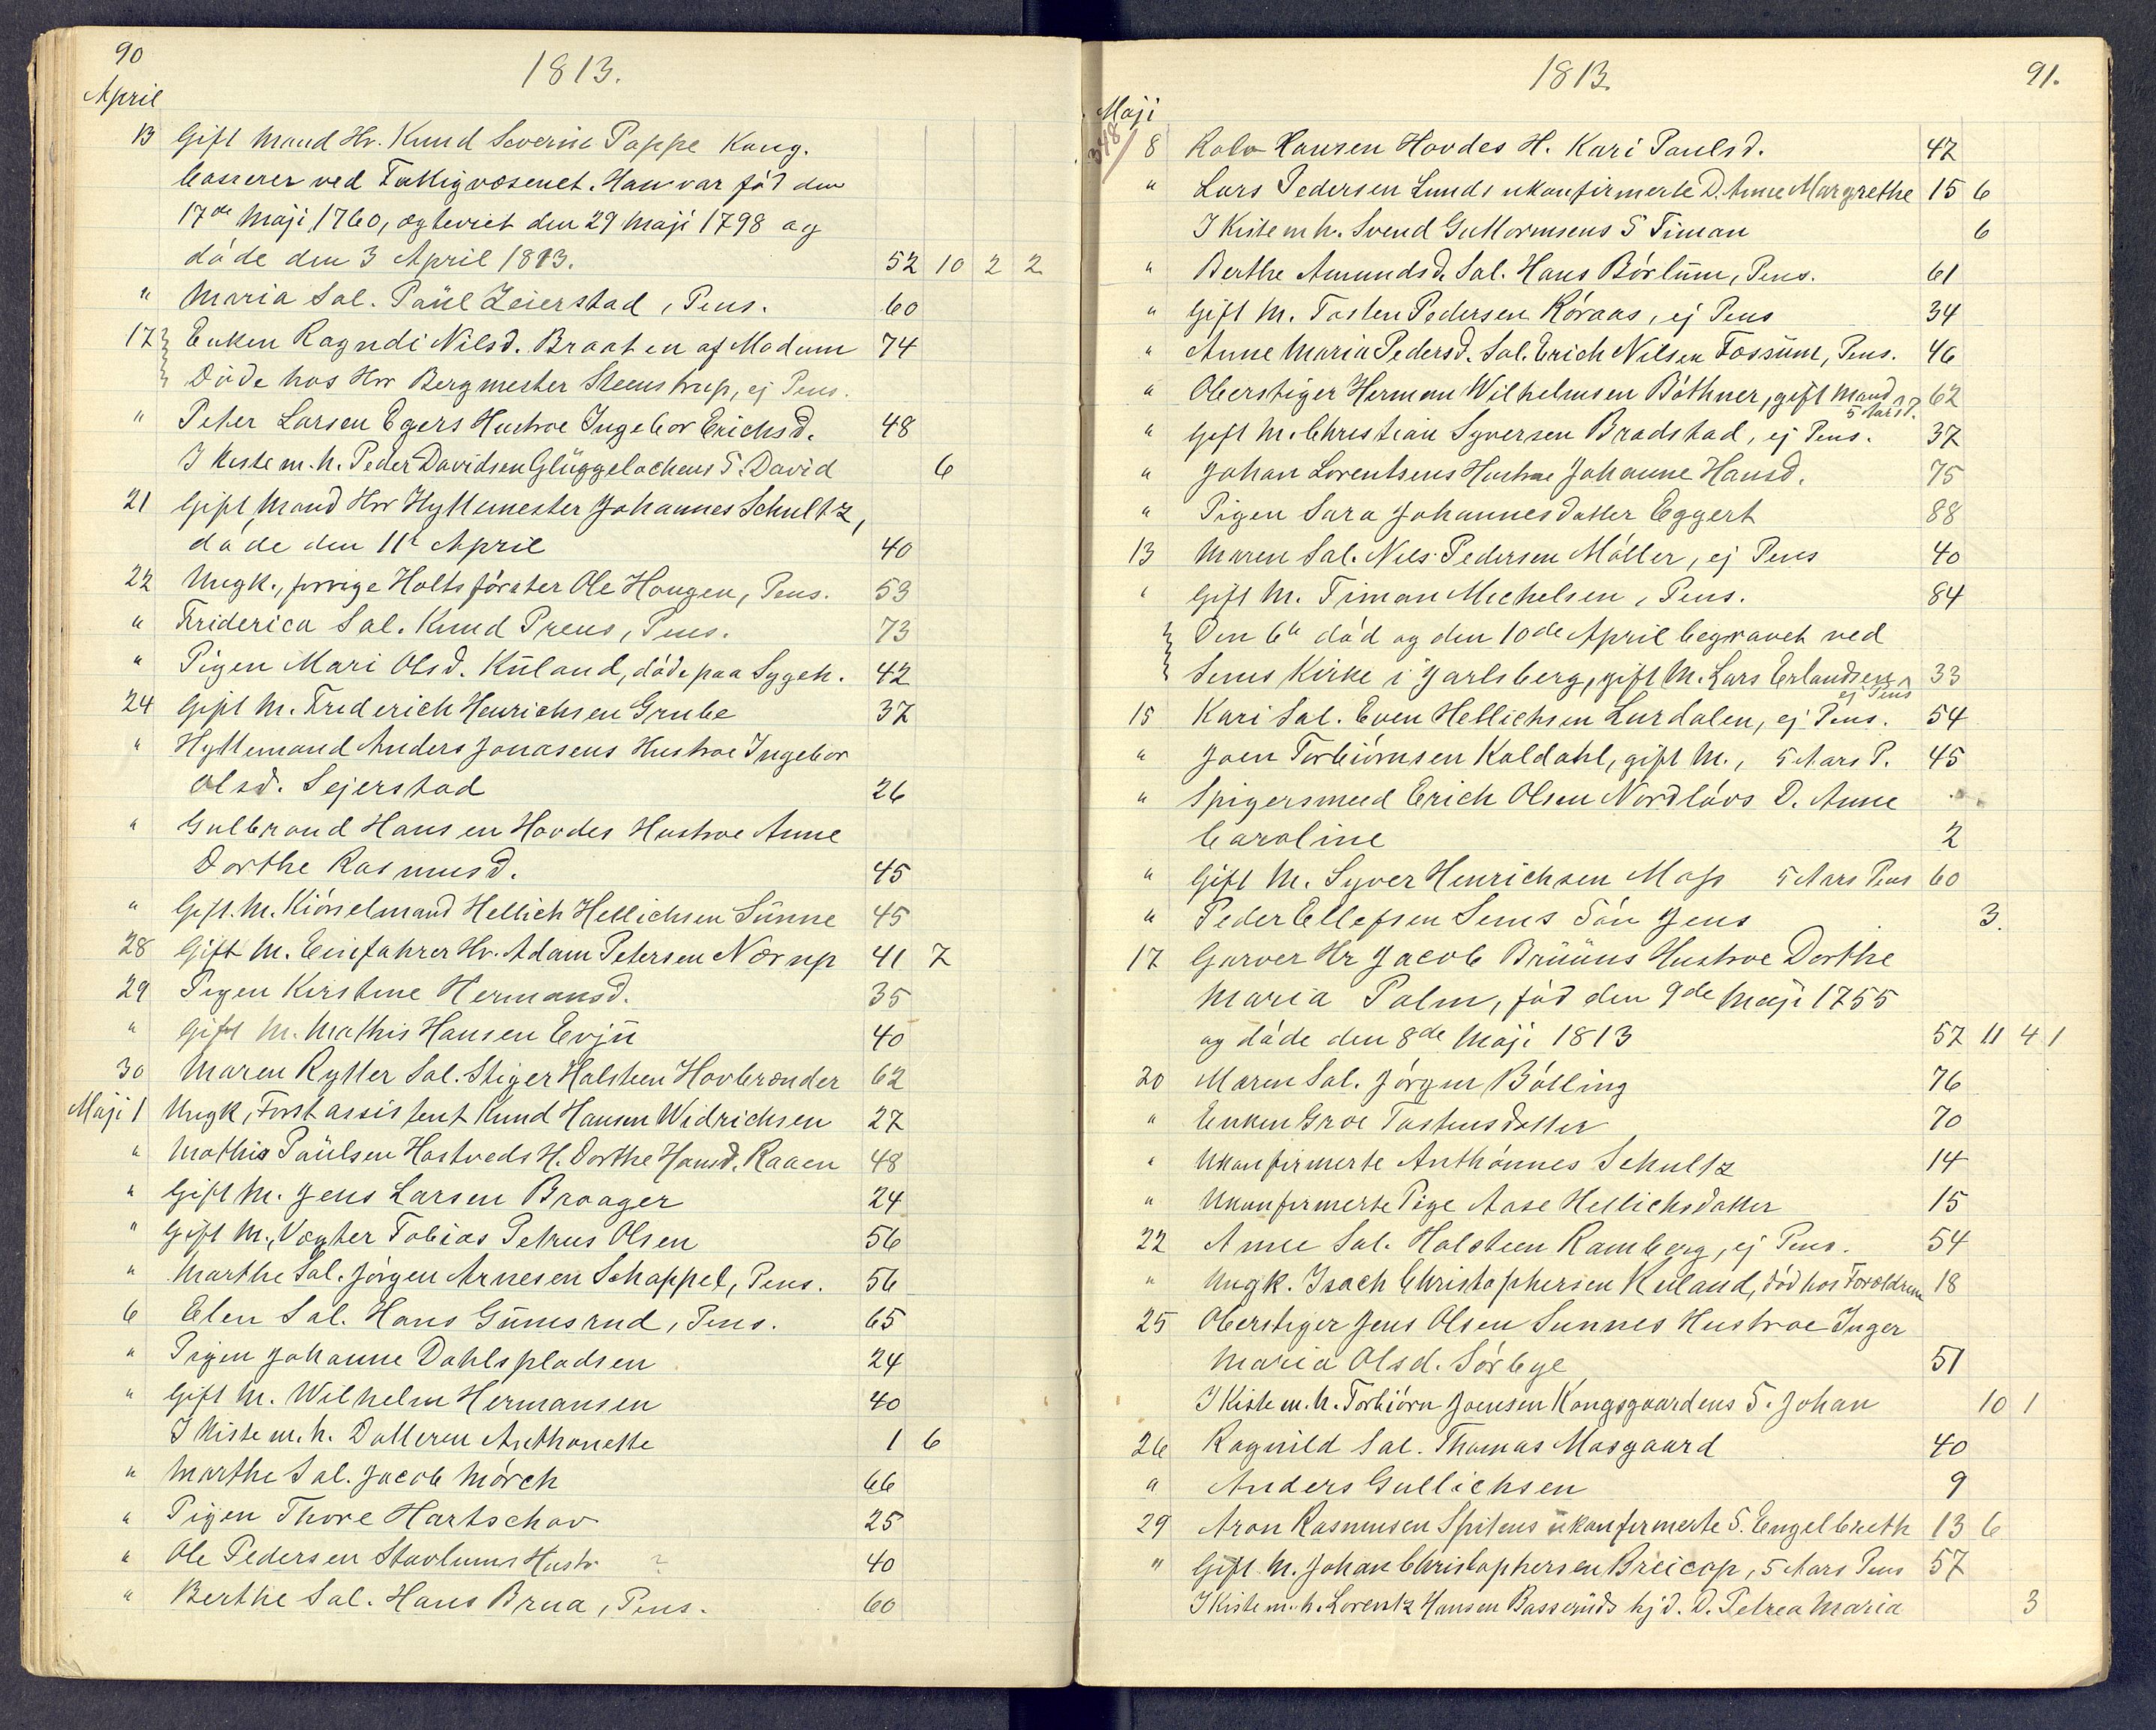 90
1813.
April
13 Gift Mand Hr. Knud Severin Poppe Kong.
Casserer ved Fattigvæsenet. Han var fød den
17de Maji 1760, ægteviet den 29 Maji 1798 og
døde den 3 April 1813. 52 10 2 2
" Maria Sal. Paül Zeierstad, Pens. 60
17 Enken Ragndi Nilsd. Braaten af Modum 74
Døde hos Hrr Bergmester Steenstrup, ej Pens.
" Peter Larsen Egers Hustroe Ingebor Erichsd. 48
I Kiste m. h. Peder Davidsen Glüggelochens S. David 6
21 Gift Mand Hrr Hyttemester Johannes Schultz,
døde den 11t April 40
22 Ungk., forrige Holtsförster Ole Hougen, Pens. 53
" Friderica Sal. Knud Preus, Pens. 73
" Pigen Mari Olsd. Küland, døde paa Sygeh. 42
24 Gift M. Frederich Henrichsen Grube 37
" Hyttemand Anders Jonasens Hustroe Ingebor
Olsd. Sejerstad 26
" Gulbrand Hansen Hovdes Hustroe Anne
Dorthe Rasmusd. 45
" Gift. M. Kiörselmand Hellich Hellichsen Sünne 45
28 Gift M. Einfahrer Hr. Adam Petersen Nørup 41 7
29 Pigen Kirstine Hermansd. 35
" Gift M. Mathis Hansen Evjü 40
30 Maren Rytter Sal. Stiger Halsteen Hovbrænder 62
Maji 1 Ungk, Forstassistent Knud Hansen Widrichsen 27
" Mathis Paülsen Hostveds H. Dorthe Hansd. Raaen 48
" Gift M. Jens Larsen Braager 24
" Gift M., Vægter Tobias Petrus Olsen 56
" Marthe Sal. Jörgen Arnesen Schappel, Pens. 56
6 Elen Sal. Hans Gümsrud, Pens. 65
" Pigen Johanne Dahlspladsen 24
" Gift M. Wilhelm Hermansen 40
I Kiste m. h. Datteren Anthonette 1 6
" Marthe Sal. Jacob Mörch 66
" Pigen Thore Hartschov 25
" Ole Pedersen Stavlums Hustr ? 40
" Berthe Sal. Hans Brua, Pens. 60
1813.
91.
Maji
348
8 Rolv Hansen Hovdes H. Kari Paulsd. 42
" Lars Pedersen Lunds ukonfirmerte D. Anne Margrethe 15 6
I Kiste m h. Svend Guttormsens S Timan 6
" Berthe Amundsd. Sal. Hans Börlüm, Pens. 61
" Gift M. Tosten Pedersen Röraas, ej Pens 34
" Anne Maria Pedersd. Sal. Erich Nilsen Fossüm, Pens. 46
" Oberstiger Herman Wilhelmsen Böthner, gift Mand 62
5 Aars P.
" Gift M. Christian Syversen Bradstad, ej Pens. 37
" Johan Lorentsens Hustroe Johanne Hansd. 75
" Pigen Sara Johannesdatter Eggert 88
13 Maren Sal. Nils Pedersen Möller, ej Pens 40
" Gift M. Timan Michelsen, Pens. 84
Den 6te död og den 10de April begravet ved
Sems Kirke i Jarlsberg, gift M. Lars Erlandsen 33
ej Pens
15 Kari Sal. Even Hellichsen Lurdalen, ej Pens. 54
" Joen Torbiörnsen Koldahl, gift M., 5 Aars P. 45
" Spigersmed Erich Olsen Nordlövs D. Anne
Caroline 2
" Gift M. Syver Henrichsen Moss 5 Aars Pens 60
" Peder Ellefsen Sems Sön Jens 3.
17 Garver Hr Jacob Brüüns Hustroe Dorthe
Maria Palm, fød den 9de Maji 1755
og døde den 8de Maji 1813 57 11 4 1
20 Maren Sal. Jörgen Bölling 76
" Enken Groe Tostensdatter 70
" Ukonfirmerte Anthönnes Schultz 14
" Ukonfirmerte Pige Aase Hellichsdatter 15
22 Anne Sal. Halsteen Ramberg, ej Pens. 54
" Ungk. Isach Christophersen Kuland, död hos Forældrene 18
25 Oberstiger Jens Olsen Sunnes Hustroe Inger
Maria Olsd. Sörbye 51
I Kiste m. h. Torbiörn Joensen Kongsgaardens S. Johan 10 1
26 Ragnild Sal. Thomas Masgaard 40
" Anders Gullichsen 9
29 Aron Rasmusen Spitens ükonfirmerte S. Engelbreth 13 6
" Gift M. Johan Christophersen Breicop, 5 Aars Pens 57
I Kiste m. h. Lorentz Hansen Basserüds hjd. D. Petrea Maria 3